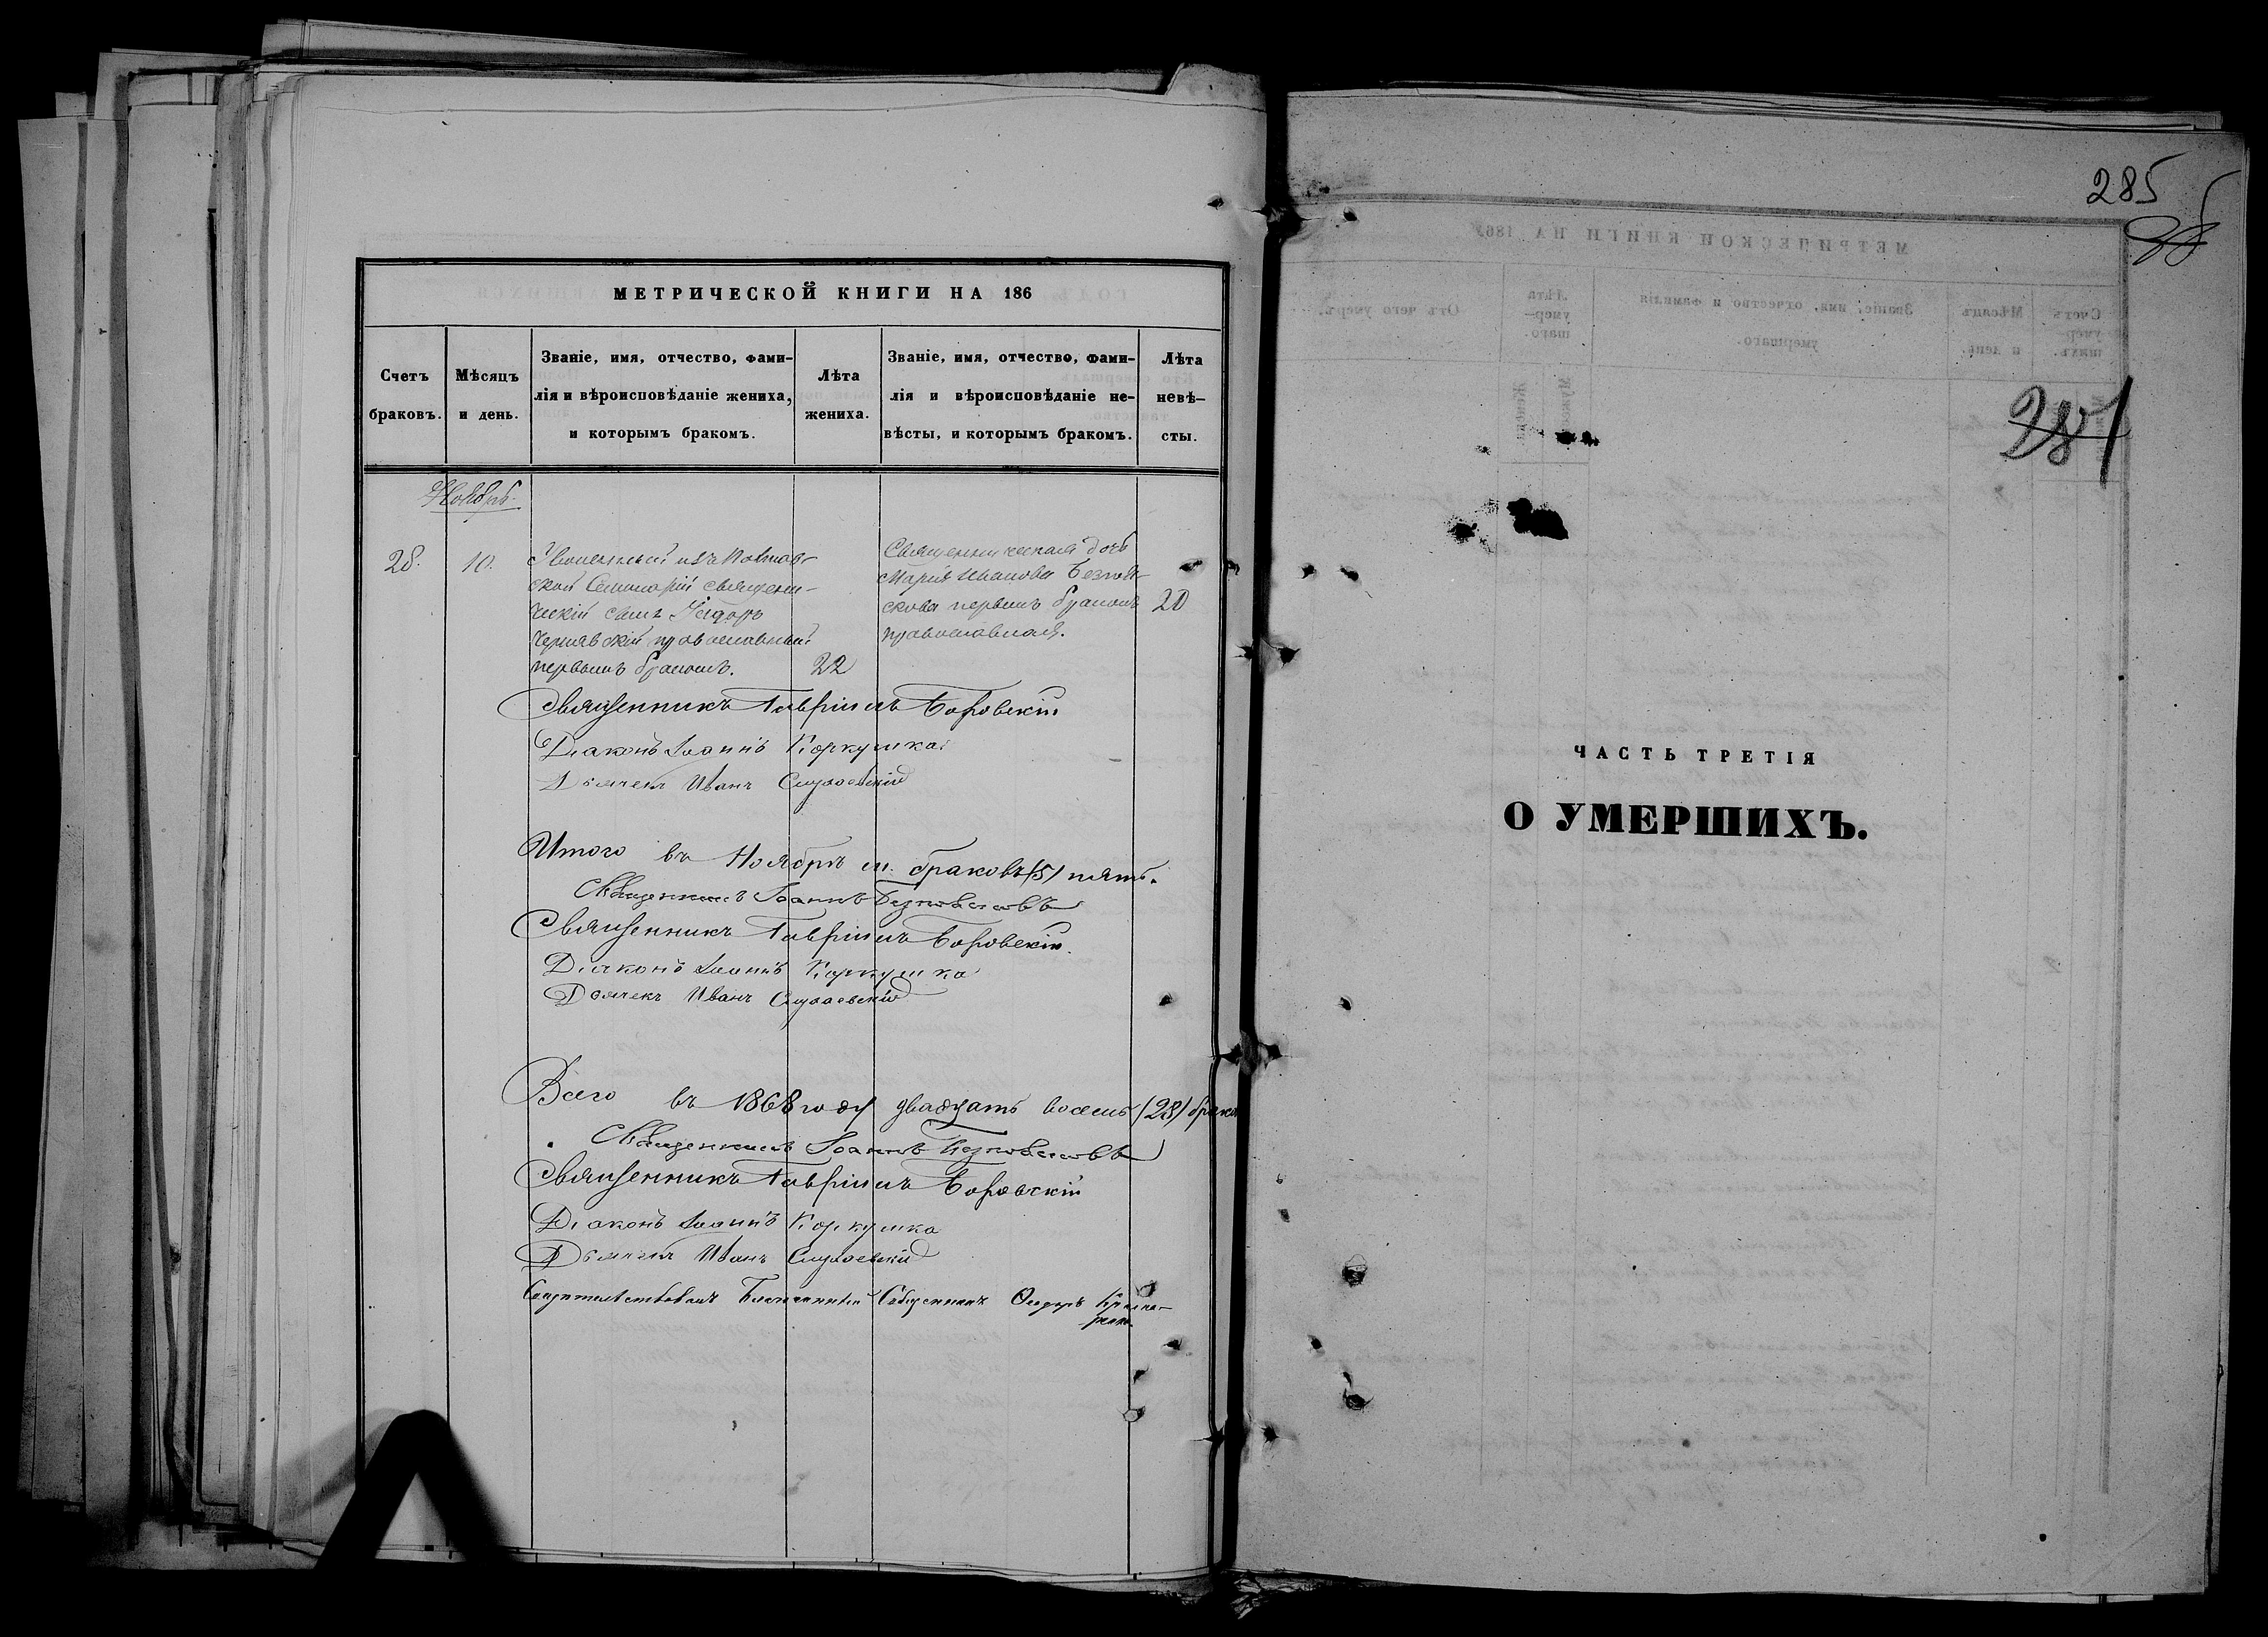 МЕТРИЧЕСКОЙ КНИГИ НА 186
Счетъ браковъ.
Мѣсяцъ и день.
Званіе, имя, отчество, фами-
лія и вѣроисповѣданіе жениха,
и которымъ бракомъ.
Лѣта жениха.
Званіе, имя, отчество, фами-
лія и вѣроисповѣданіе не-
вѣсты, и которымъ бракомъ.
Лѣта невѣ-
сты.
Ноябрь.
28. 10.
Уволенный изъ Полтав-
ской Семинаріи священи-
ческій сынъ
Чернявскій православный
первымъ бракомъ.
22
Священническая дочь
Марія Иванова
первымъ бракомъ
православная.
20
Священникъ Гавріилъ Боровскій
Діаконъ Іоаннъ Коркушка
Дьячекъ Иванъ
Итого въ Ноябрѣ м. браковъ (5) пять.
Священникъ Іоаннъ
Священникъ Гавріилъ Боровскій.
Діаконъ Іоаннъ Коркушка
Дьячекъ Иванъ
Всего въ 1868 году двадцать восемь (28) брако
Священникъ Іоаннъ
Священникъ Гавріилъ Боровскій
Діаконъ Іоаннъ Коркушка
Дьячекъ Иванъ
Благочинный Священникъ Ѳеодоръ
285
ЧАСТЬ ТРЕТІЯ
О УМЕРШИХЪ.